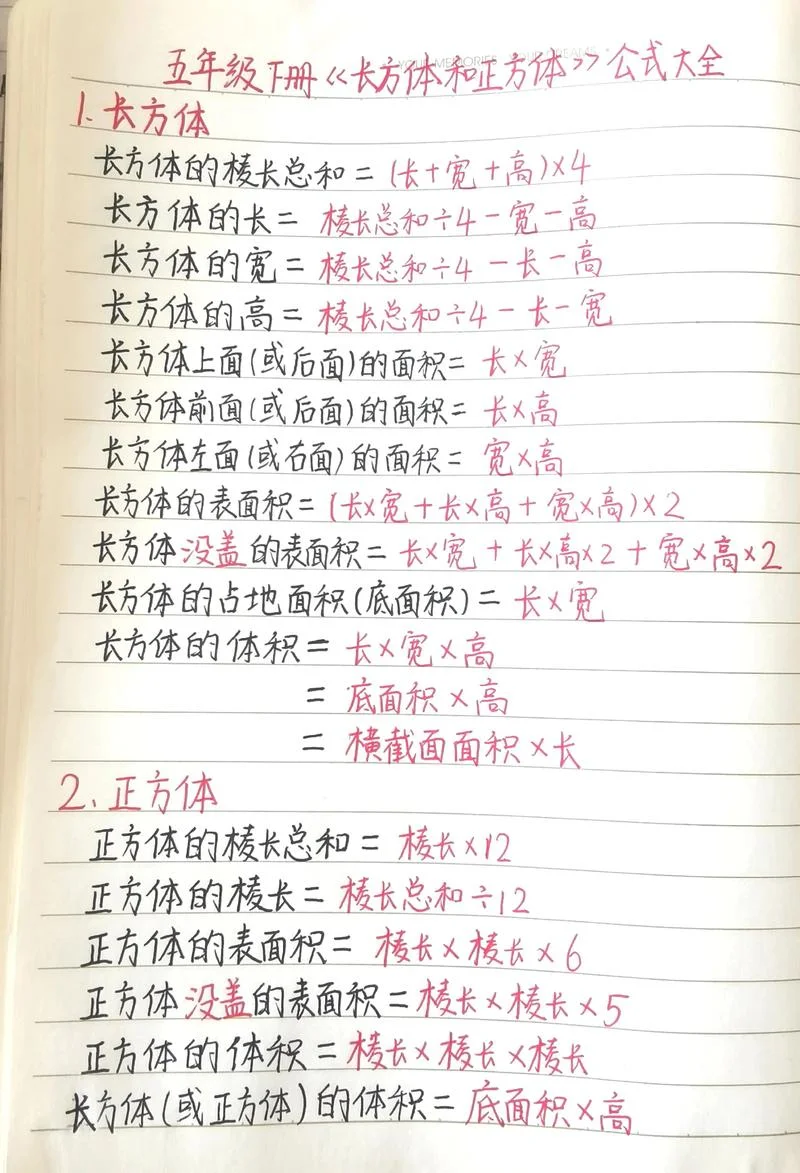 YOUR MEMORIES YOUR DREAMS
五年级下册《长方体和正方体》公式大全
1.长方体
长方体的棱长总和=(长+宽+高)×4
长方体的长=棱长总和÷4-宽-高
长方体的宽=棱长总和÷4-长-高
长方体的高=棱长总和÷4-长-宽
长方体上面(或后面)的面积=长×宽
长方体前面(或后面)的面积=长×高
长方体左面(或右面)的面积=宽×高
长方体的表面积=(长×宽+长×高+宽×高)×2
长方体没盖的表面积=长×宽+长×高×2+宽×高×2
长方体的占地面积(底面积)=长×宽
长方体的体积=长×宽×高
=底面积×高
=横截面面积×长
2.正方体
正方体的棱长总和=棱长×12
正方体的棱长=棱长总和÷12
正方体的表面积=棱长×棱长×6
正方体没盖的表面积=棱长×棱长×5
正方体的体积=棱长×棱长×棱长
长方体(或正方体)的体积=底面积×高